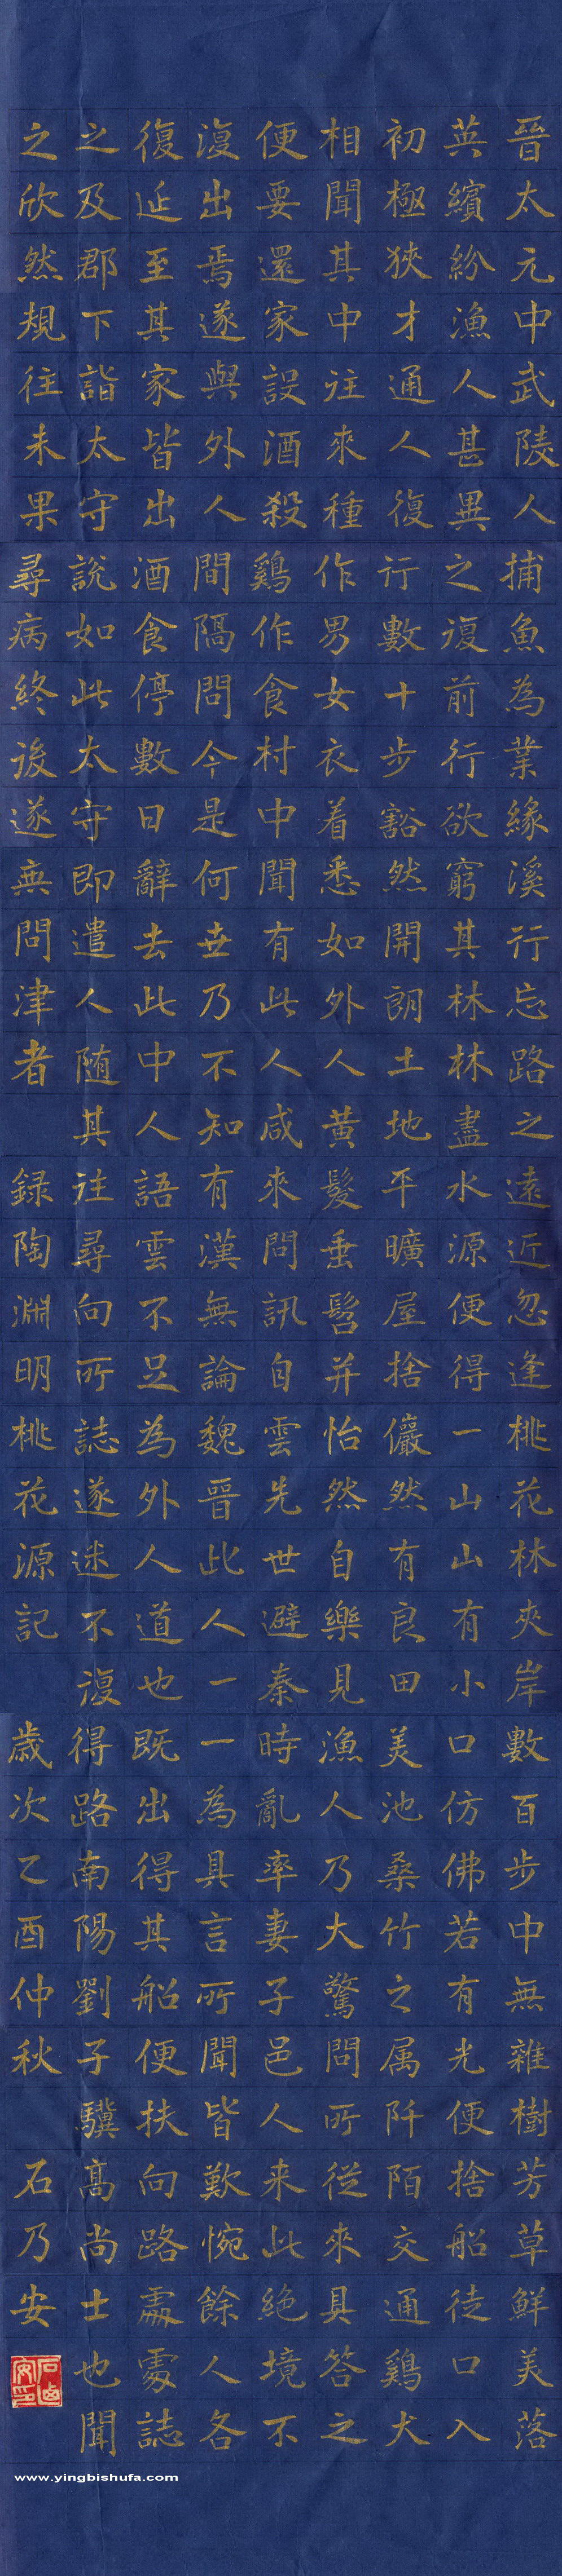 晉太元中武陵人捕魚為業緣溪行忘路之遠近忽逢桃花林夾岸數百步中無雜樹芳草鮮美落
英繽紛漁人甚異之復前行欲窮其林林盡水源便得一山山有小口仿佛若有光便捨船徒口入
初極狹才通人復行數十步豁然開朗土地平曠屋捨儼然有良田美池桑竹之属阡陌交通鷄犬
相聞其中往來種作男女衣着悉如外人黃髮垂髫并怡然自樂見漁人乃大驚問所從來具答之
便要還家設酒殺鷄作食村中聞有此人咸來問訊自雲先世避秦時亂率妻子邑人来此絶境不
復出焉遂與外人間隔問今是何世乃不知有漢無論魏晉此人一一為具言所聞皆歎惋餘人各
復延至其家皆出酒食停數日辭去此中人語雲不足為外人道也既出得其船便扶向路處處誌
之及郡下詣太守說如此太守即遣人随其往尋向所誌遂迷不復得路南陽劉子驥高尚士也聞
之欣然規往未果尋病終後遂無問津者 録陶淵明桃花源記 歲次乙酉仲秋 石乃安
www.yingbishufa.com